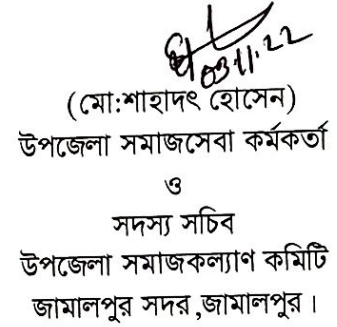 03.11.22
(মো:শাহাদৎ হোসেন)
উপজেলা সমাজসেবা কর্মকর্তা
ও
সদস্য সচিব
উপজেলা সমাজকল্যাণ কমিটি
জামালপুর সদর,জামালপুর।